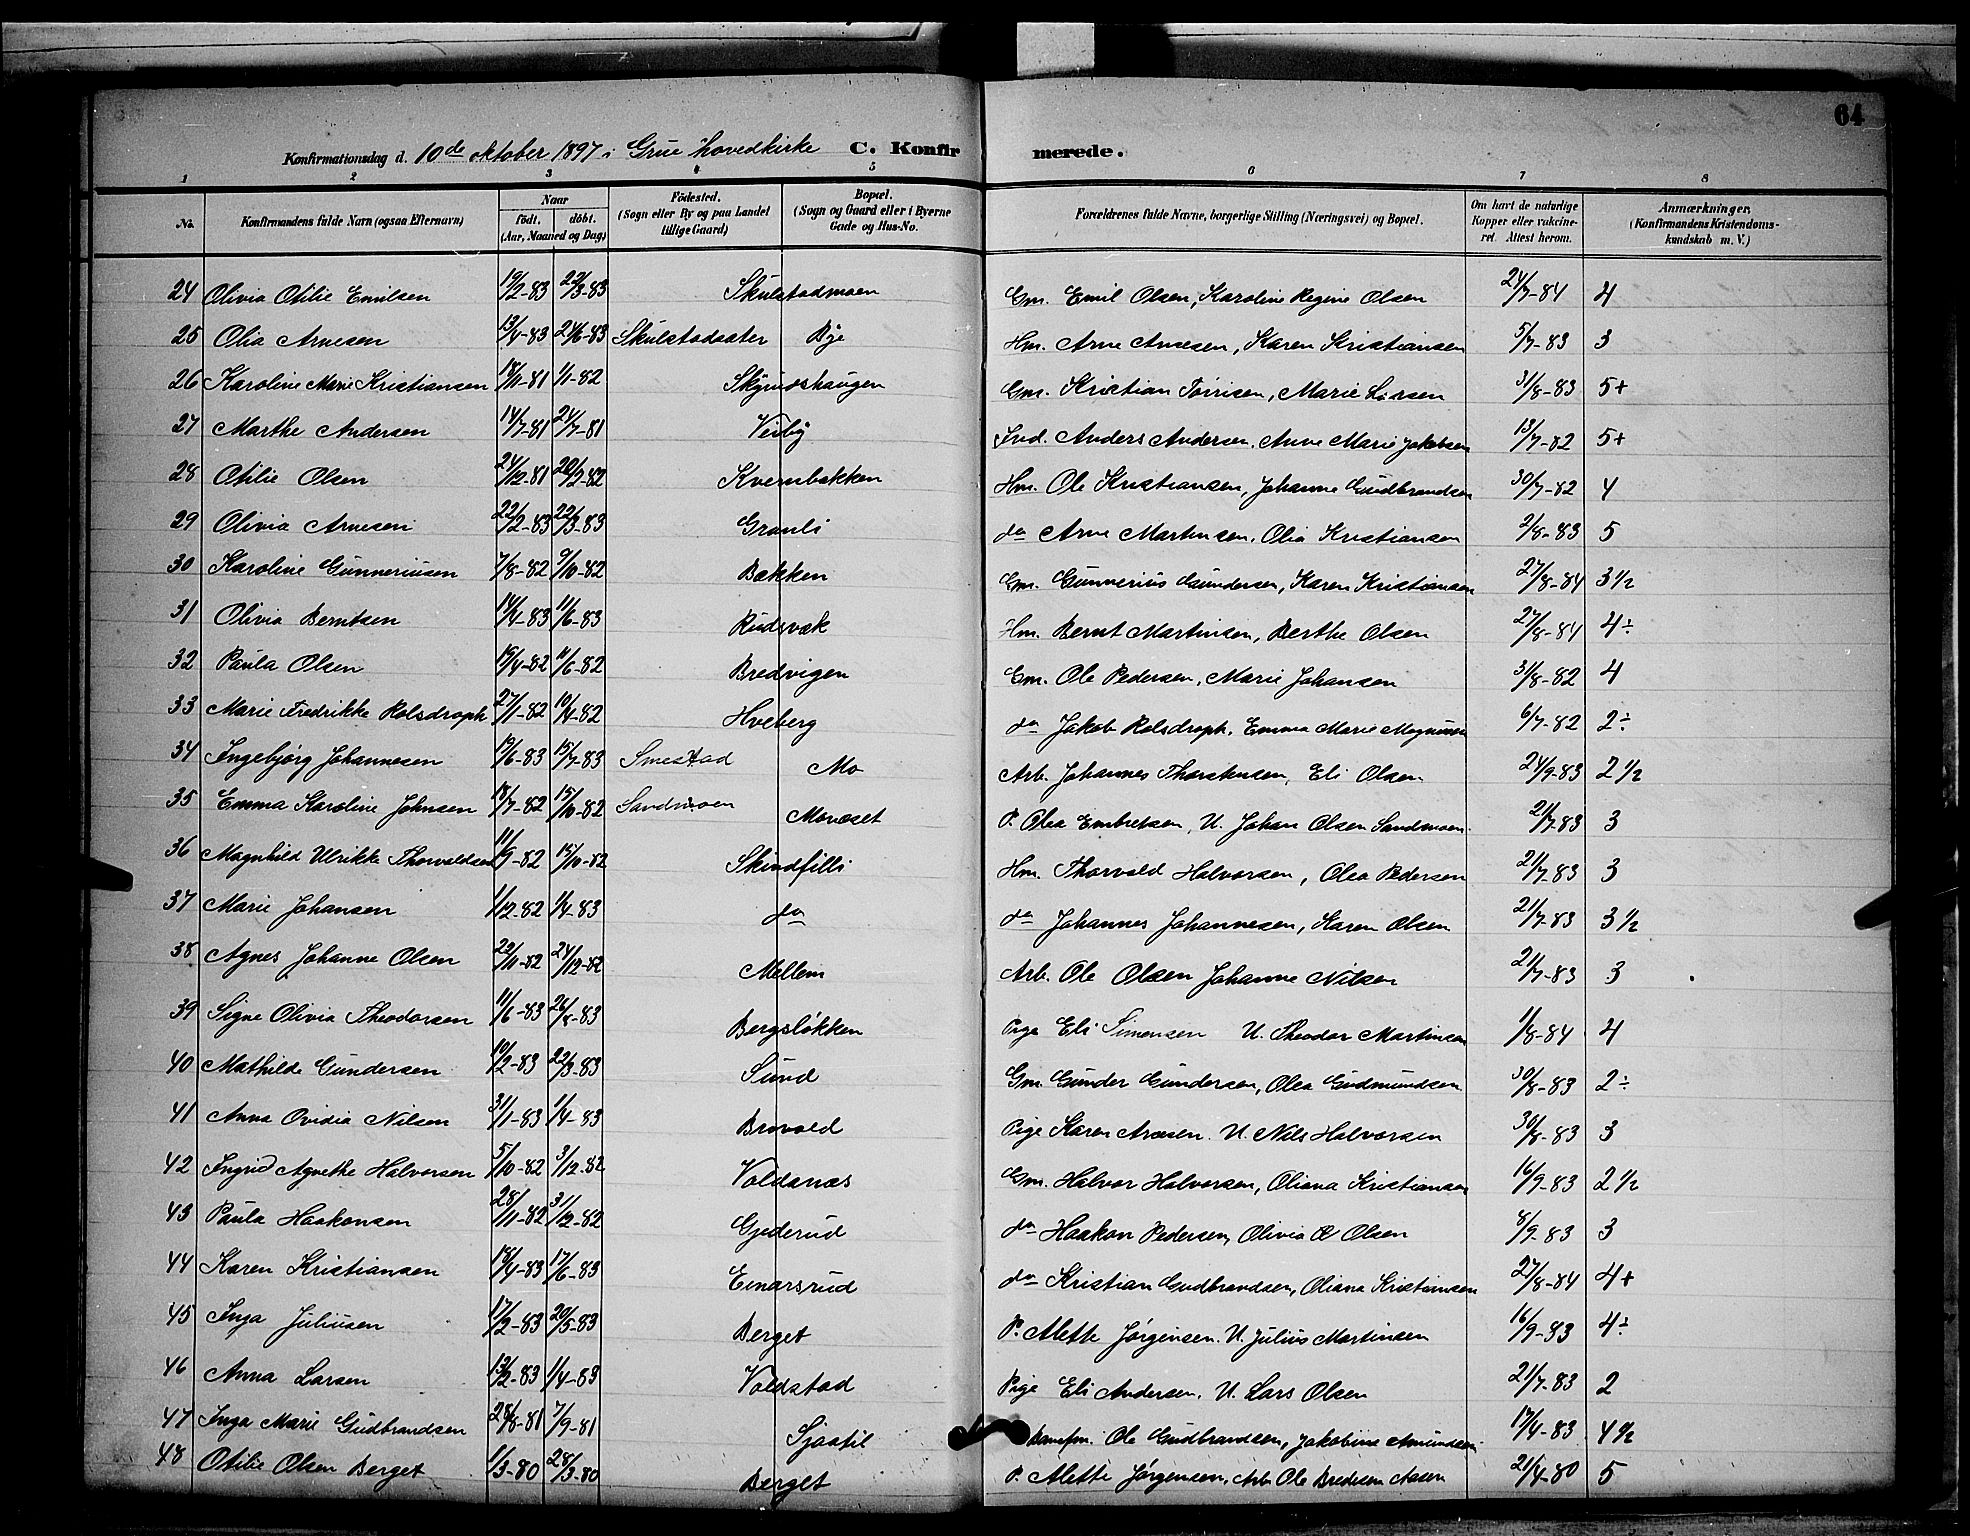 64
Konfirmationsdag d. 10de oktober 1897 i Grue hovedkirke C. Konfirmerede.
1 2 3 4 5 6 7 8
No. Konfirmandens fulde Navn (ogsaa Efternavn) Naar födt. döbt. (Aar, Maaned og Dag) Födested. (Sogn eller By og paa Landet tillige Gaard) Bopæl. (Sogn og Gaard eller i Byerne Gade og Hus-No. Forældrenes fulde Navne, borgerlige Stilling (Næringsvei) og Bopæl. Om havt de naturlige Kopper eller vakcineret. Attest herom. Anmærkninger, (Konfirmandens Kristendomskundskab m. V.)
24 Olivia Otilie Emilsen 19/2-83 22/3-83 Skulstadmoen Gm. Emil Olsen, Karoline Regine Olsen 21/7-84 4
25 Olia Arnesen 13/4-83 24/6-83 Skulstadsæter Bye Hm. Arne Arnesen, Karen Kristiansen 5/7-83 3
26 Karoline Marie Kristiansen 18/11-81 1/1-82 Skyrudshaugen Gm. Kristian Torrisen, Marie Larsen 31/8-83 5+
27 Marthe Andersen 14/7-81 24/7-81 Veiby Ind. Anders Andersen, Anne Marie Jakobsen 13/7-82 5+
28 Otilie Olsen 24/12-81 26/2-82 Kvernbakken Hm. Ole Kristiansen, Johanne Gudbrandsen 30/7-82 4
29 Olivia Arnesen 22/2-83 22/3-83 Granli do Arne Martinsen, Olia Kristiansen 2/8-83 5
30 Karoline Gunneriusen 7/8-82 9/10-82 Bakken Gm. Gunnerius Gundersen, Karen Kristiansen 27/8-84 3 1/2
31 Olivia Berntsen 14/4-83 11/6-83 Rudsvæk Hm. Bernt Martinsen, Berthe Olsen 27/8-84 4÷
32 Paula Olsen 19/4-82 11/6-82 Bredvigen Gm. Ole Pedersen, Marie Johansen 31/8-82 4
33 Marie Fredrikke Rolsdroph 27/1-82 10/4-82 Hveberg do Jakob Rolsdroph, Emma Marie Magnussen 6/7-82 2÷
34 Ingebjørg Johannesen 19/6-83 15/7-83 Smestad Mo Arb. Johannes Thorstensen, Eli Olsen 24/9-83 2 1/2
35 Emma Karoline Johnsen 18/7-82 15/10-82 Sandmoen Movæset P. Olea Embretsen, U. Johan Olsen Sandmoen 21/7-83 3
36 Magnhild Ulrikke Thorvaldsen 11/9-82 15/10-82 Skindfilli Hm. Thorvald Halvorsen, Olea Pedersen 21/7-83 3
37 Marie Johansen 1/12-82 1/4-83 do do Johannes Johannesen, Karen Olsen 21/7-83 3 1/2
38 Agnes Johanne Olsen 22/11-82 24/12-82 Mellem Arb. Ole Olsen Johanne Nilsen 21/7-83 3
39 Signe Olivia Theodorsen 11/6-83 26/8-83 Bergsløkken Pige Eli Simensen U. Theodor Martinsen 1/8-84 4
40 Mathilde Gundersen 10/2-83 22/3-83 Sund Gm Gunder Gundersen, Olea Gudmundsen 30/8-83 2÷
41 Anna Ovidia Nilsen 31/1-83 1/4-83 Brovold Pige Karen Arnesen. U. Nils Halvorsen 30/8-83 3
42 Ingrid Agnethe Halvorsen 5/10-82 3/12-82 Voldsnæs Gm. Halvor Halvorsen, Oliana Kristiansen 16/9-83 2 1/2
43 Paula Haakonsen 28/11-82 31/12-82 Gjederud do Haakon Pedersen, Olivia Olsen 8/9-83 3
44 Karen Kristiansen 18/4-83 17/6-83 Einarsrud do Kristian Gudbrandsen, Oliana Kristiansen 27/8-84 4+
45 Inga Juliusen 17/2-83 20/5-83 Berget P. Alette Jørgensen. U. Julius Martinsen 16/9-83 4÷
46 Anna Larsen 13/2-83 1/4-83 Voldstad Pige Eli Andersen. U. Lars Olsen 21/7-83 2
47 Inga Marie Gudbrandsen 28/8-81 7/9-81 Sjaatil Ole Gudbrandsen, Jakobine Amundsen 17/4-83 4 1/2
48 Otilie Olsen Berget 1/3-80 28/3-80 Berget P. Alette Jørgensen, Arb. Ole Bredesen Aasen 21/4-80 5